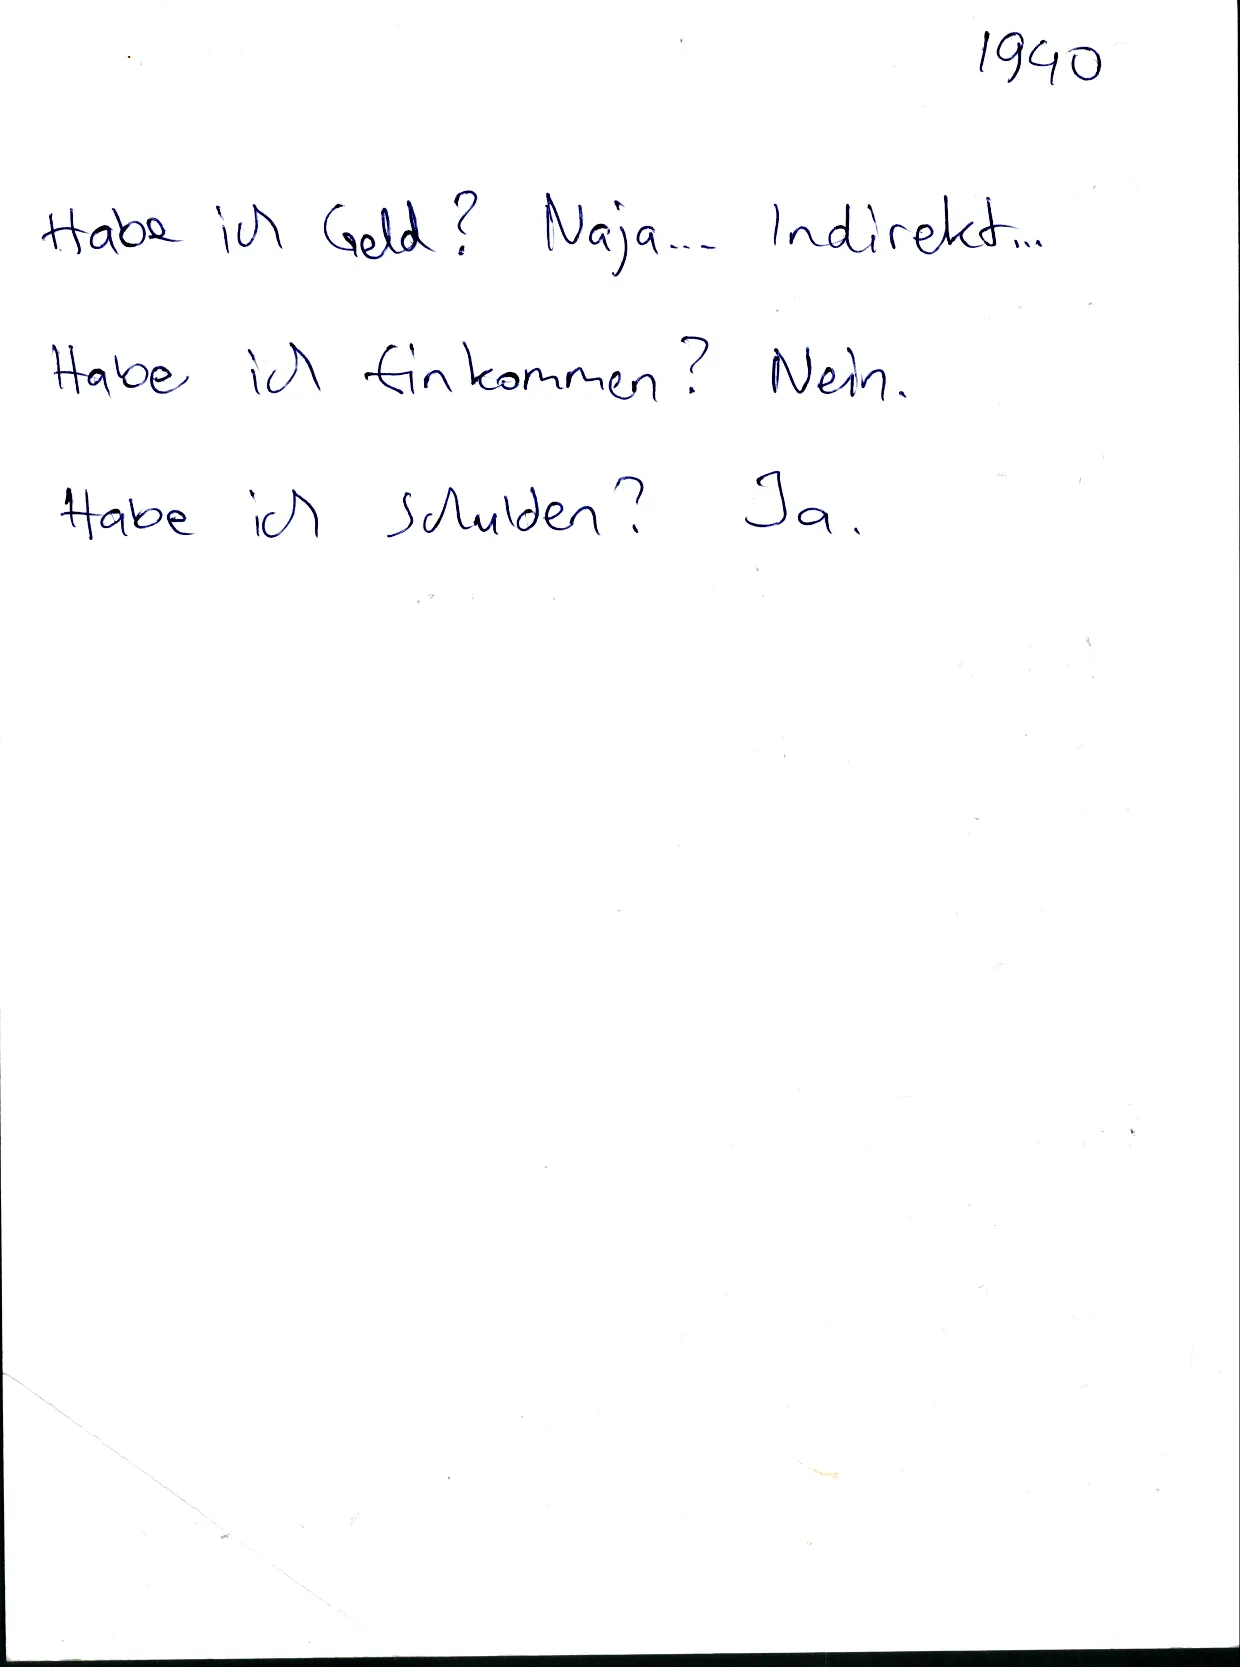 1940
Habe ich Geld? Naja... Indirekt...
Habe ich Einkommen? Nein.
Habe ich Schulden? Ja.